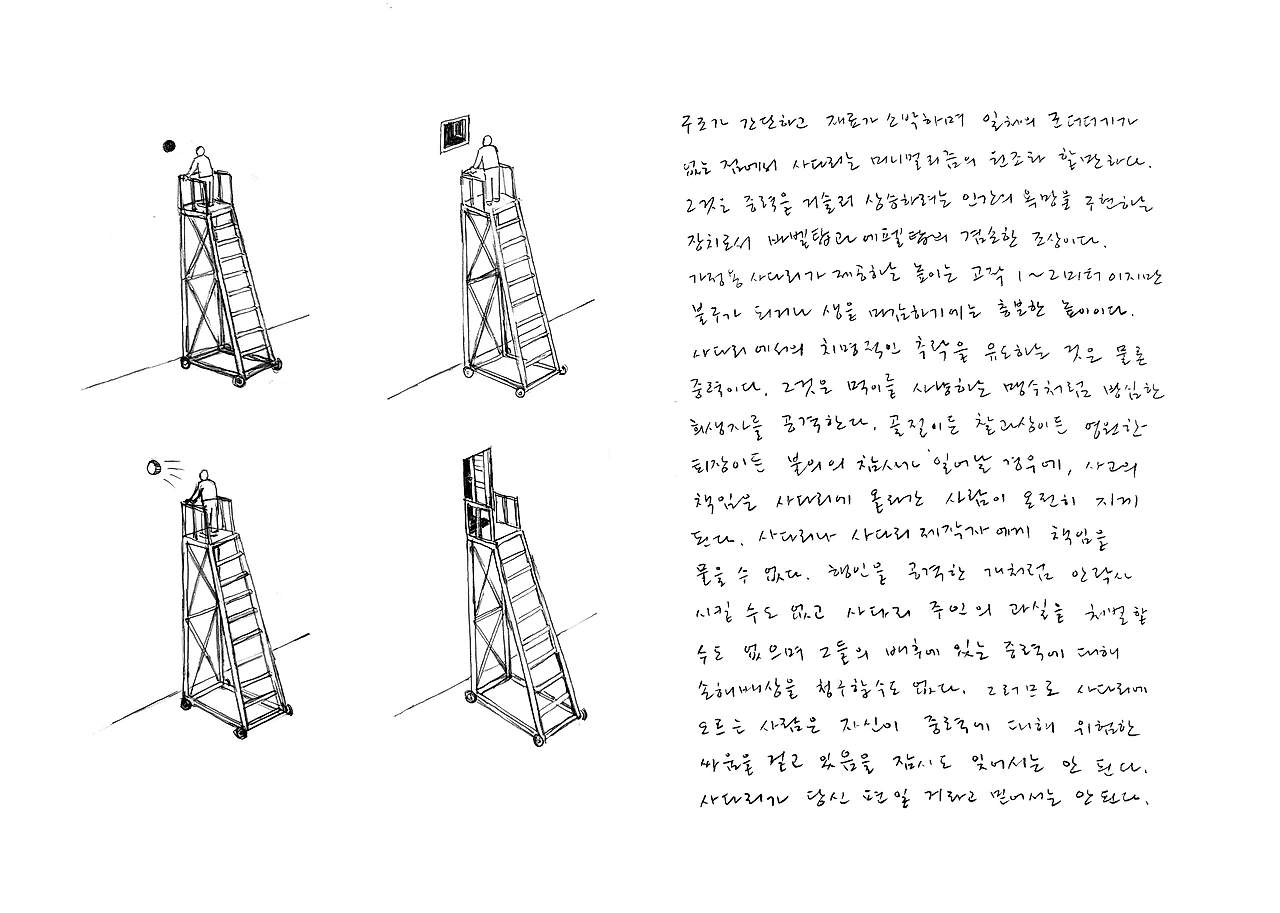 구조가 간단하고 재료가 소박하며 일체의 군더더기가
없는 점에서 사다리는 미니멀리즘의 원조라 할만하다.
그것은 중력을 거슬러 상승하려는 인간의 욕망을 구현하는
장치로서 바벨탑과 에펠탑의 겸손한 조상이다.
가정용 사다리가 제공하는 높이는 고작 1~2미터이지만
불구가 되거나 생을 마감하기에는 충분한 높이이다.
사다리에서의 치명적인 추락을 유도하는 것은 물론
중력이다. 그것은 먹이를 사냥하는 맹수처럼 방심한
희생자를 공격한다. 골절이든 찰과상이든 영원한
퇴장이든 불의의 참사가 일어날 경우에, 사고의
책임은 사다리에 올라간 사람이 온전히 지게
된다. 사다리나 사다리 제작자에게 책임을
물을 수 없다. 행인을 공격한 개처럼 안락사
시킬 수도 없고 사다리 주인의 과실을 처벌할
수도 없으며 그들의 배후에 있는 중력에 대해
손해배상을 청구할수도 없다. 그러므로 사다리에
오르는 사람은 자신이 중력에 대해 위험한
싸움을 걸고 있음을 잠시도 잊어서는 안 된다.
사다리가 당신 편일 거라고 믿어서는 안 된다.